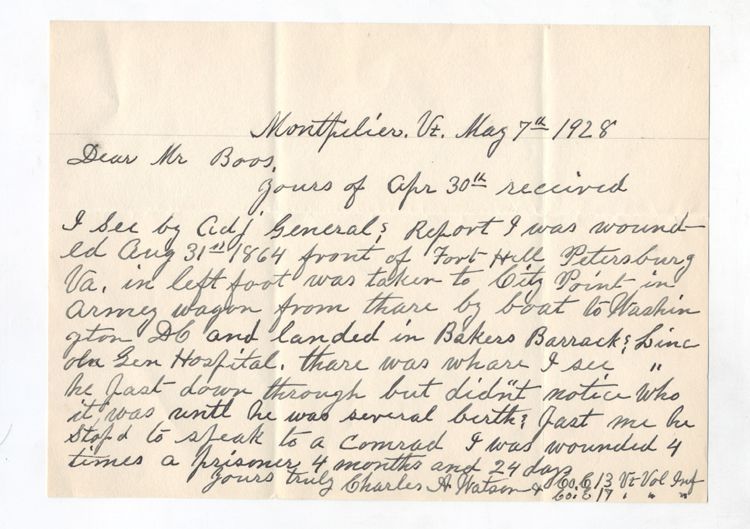 Montpelier. Vt. May 7th 1928
Dear Mr Boos.
Yours of Apr 30th received
I see by Adj General's Report I was wound-
ed Aug 31st 1864 front of Fort Hill Petersburg
Va. in left foot was taken to City Point in
Armey wagon from thare by boat to Washin
gton DC and landed in Bakers Barracks, Linc
oln Gen Hospital. thare was whare I see "
he past down through but didn't notice who
it was until he was several births past me he
stop'd to speak to a comrad I was wounded 4
times a prisoner 4 months and 24 days
Yours truly Charles A Watson Co. C 13 Vt Vol Inf
Co. E 17 " " "